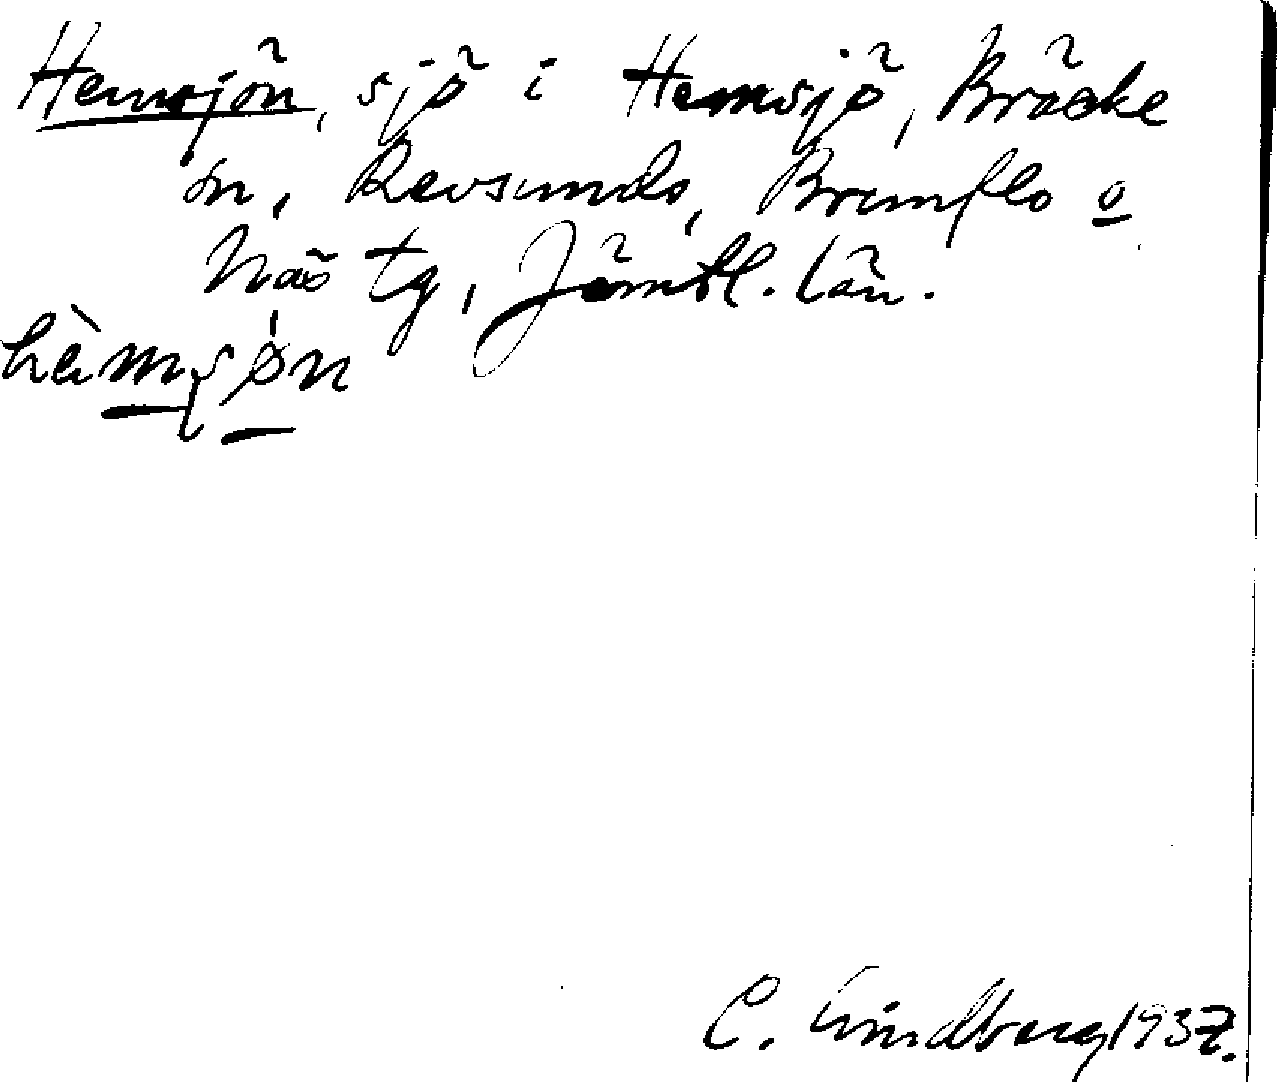 Hemsjön, sjö i Hemsjö, Bräcke
sn, Revsunds, Brunflo o
Näs tg, Jämtl. län.
hèmsøn
C. Lindberg 1937.